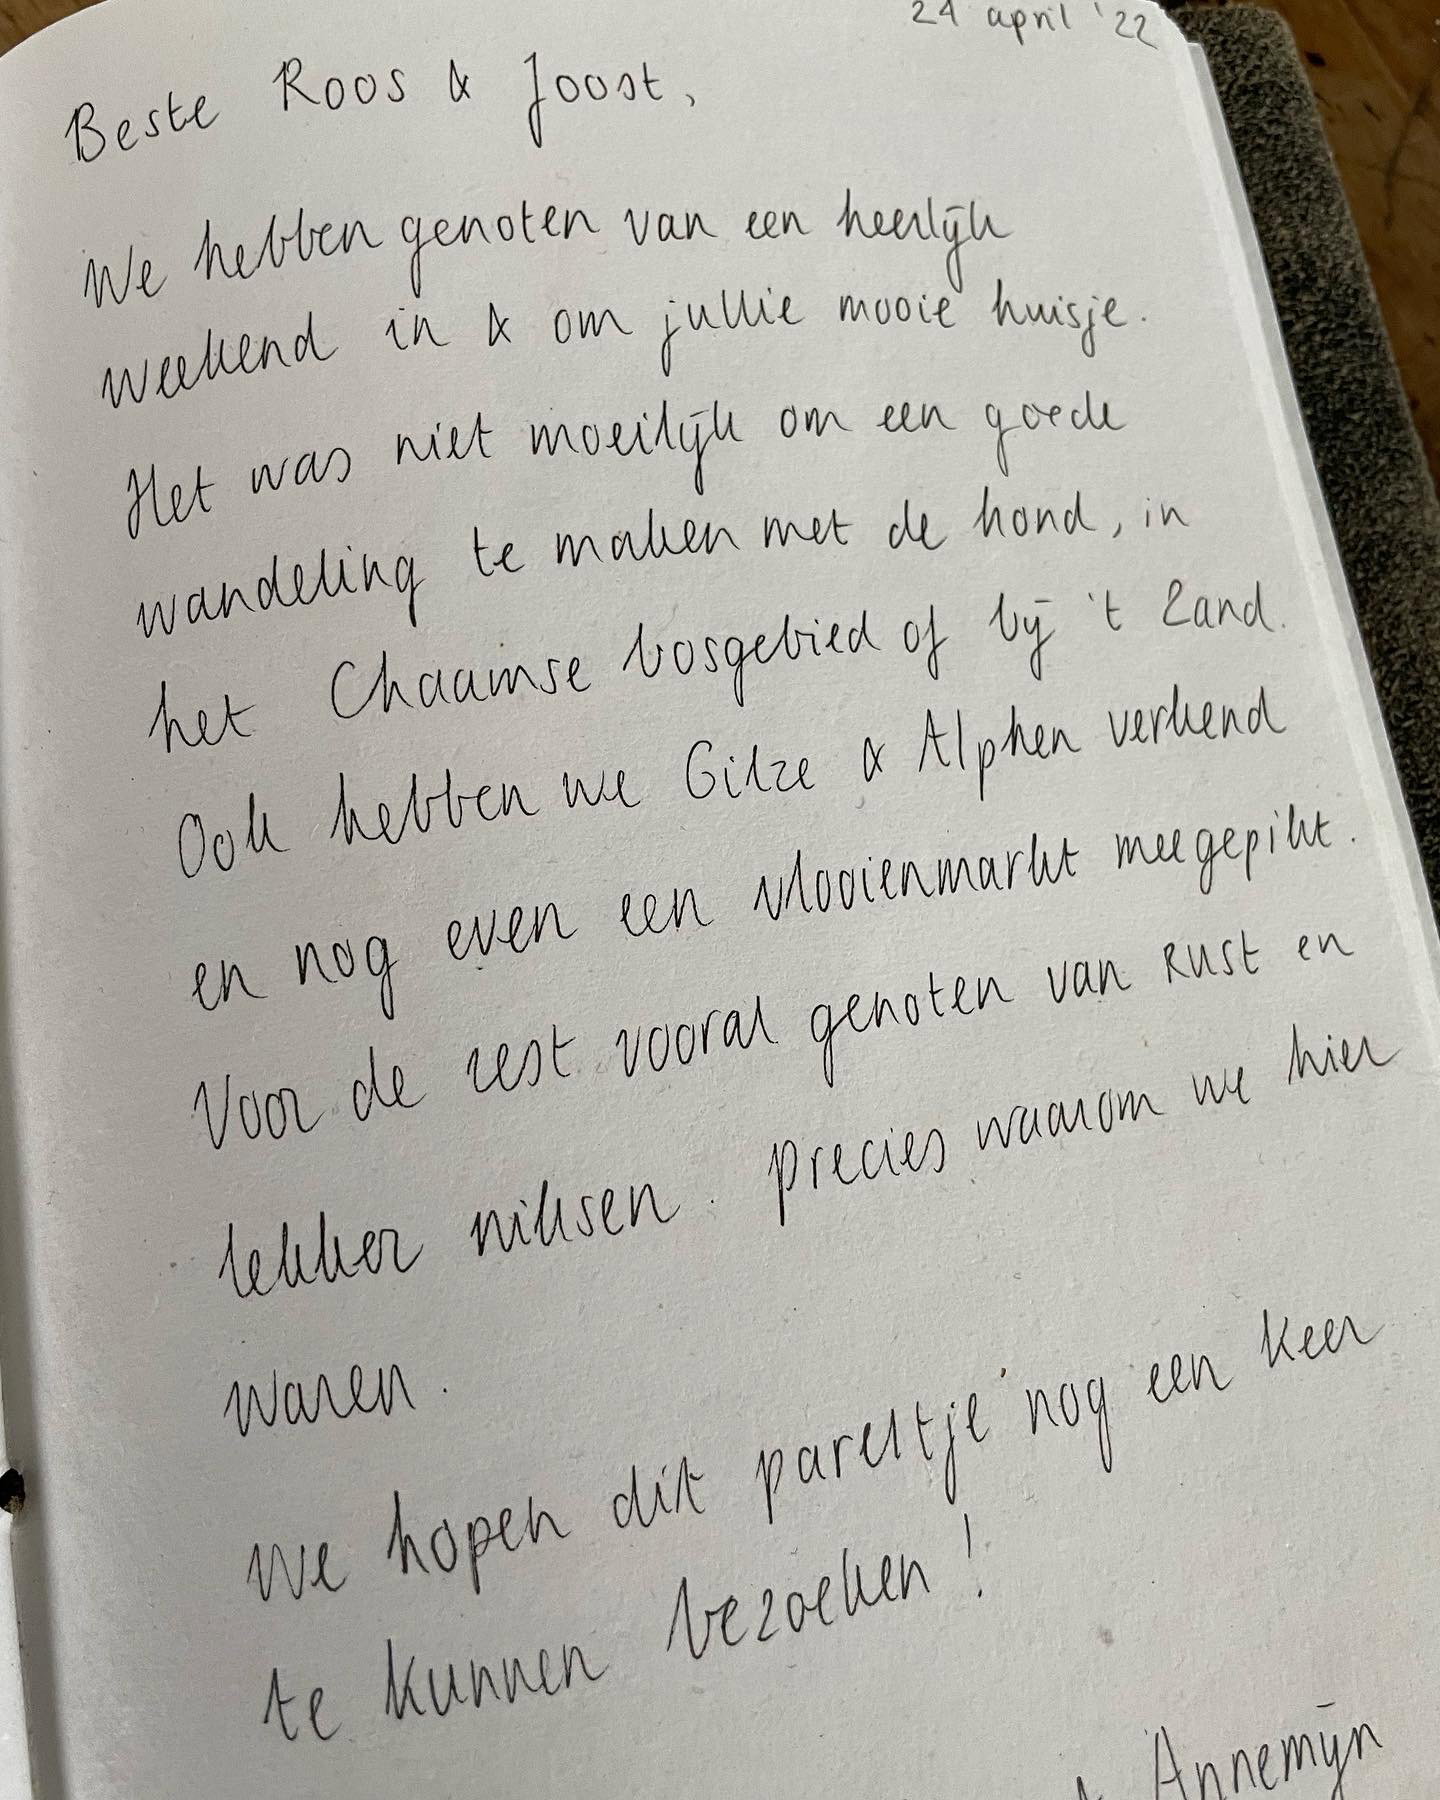 24 april '22
Beste Roos & Joost,
We hebben genoten van een heerlijk
weekend in & om jullie mooie huisje.
Het was niet moeilijk om een goede
wandeling te maken met de hond, in
het Chaamse bosgebied of bij 't Zand.
Ook hebben we Gilze & Alphen verkend
en nog even een vlooienmarkt meegepikt.
Voor de rest vooral genoten van rust en
lekker niksen. Precies waarom we hier
waren.
We hopen dit pareltje nog een keer
te kunnen bezoeken!
Annemijn